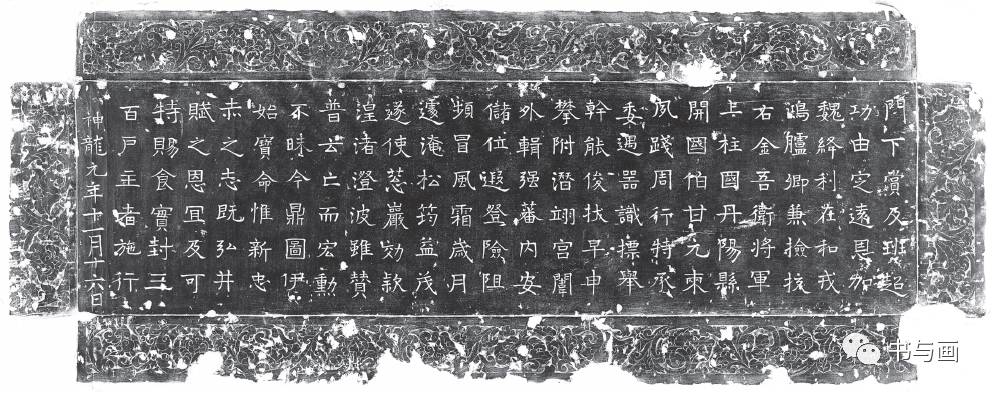 門下賞及班超
功由定遠恩加
魏絳利在和戎
鴻臚卿兼撿挍
右金吾衛將軍
上柱國丹陽縣
開國伯甘元柬
夙踐周行特承
委遇器識摽舉
幹能俊扶早申
攀附潛翊宮闈
外輯强蕃內安
儲位遐登險阻
頻冒風霜歲月
遽淹松筠益茂
遂使葱巖効款
湟渚澄波雖贊
普去亡而宏勳
不昧今鼎圖伊
始寶命惟新忠
赤之志既弘井
賦之恩宜及可
特賜食實封三
百戶主者施行
神龍元年十一月十六日
书与画